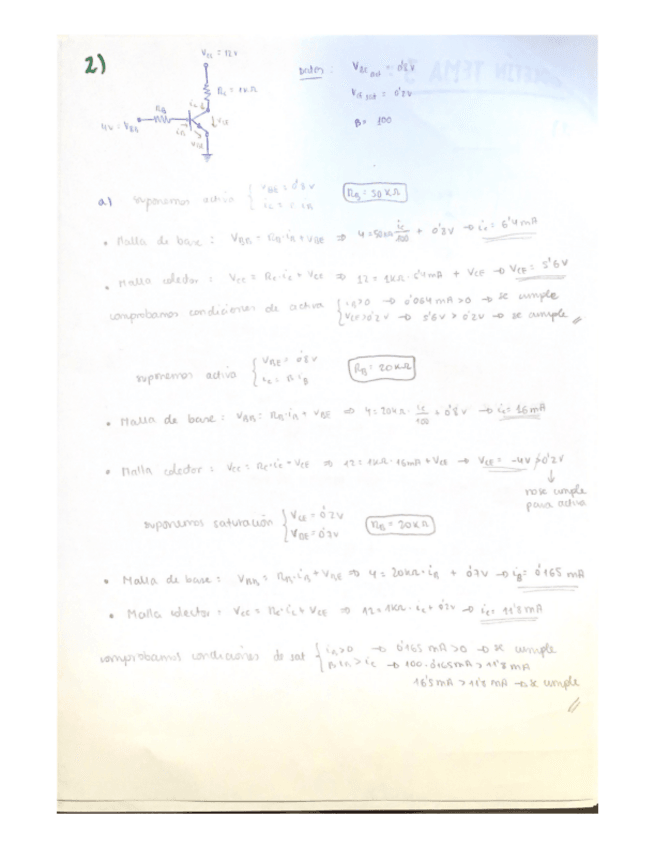 2)
Vcc = 12V
Rc = 1KΩ
RB
4V = VBB
iB
VCE
VBE
Datos : VBE act = 0'8V
VCE sat = 0'2V
β = 100
a) suponemos activa { VBE = 0'8V
RB = 50KΩ
• Malla de base : VBB = RB·iB + VBE ⇒ 4 = 50KΩ · ic/100 + 0'8V → ic = 6'4mA
• Malla colector : Vcc = Rc·ic + VCE ⇒ 12 = 1KΩ · 6'4mA + VCE → VCE = 5'6V
comprobamos condiciones de activa { iB>0 → 0'064mA>0 → se cumple
VCE>0'2V → 5'6V > 0'2V → se cumple //
suponemos activa { VBE = 0'8V
ic = β·iB
RB = 20KΩ
• Malla de base : VBB = RB·iB + VBE ⇒ 4 = 20KΩ · ic/100 + 0'8V → ic = 16mA
• Malla colector : Vcc = Rc·ic + VCE ⇒ 12 = 1KΩ · 16mA + VCE → VCE = -4V ≯ 0'2V
↓
no se cumple
para activa
suponemos saturación { VCE = 0'2V
VBE = 0'7V
RB = 20KΩ
• Malla de base : VBB = RB·iB + VBE ⇒ 4 = 20KΩ·iB + 0'7V → iB = 0'165 mA
• Malla colector : Vcc = Rc·ic + VCE ⇒ 12 = 1KΩ · ic + 0'2V → ic = 11'8mA
comprobamos condiciones de sat { iB>0 → 0'165 mA>0 → se cumple
β·iB > ic → 100·0'165mA > 11'8 mA
16'5 mA > 11'8 mA → se cumple
//